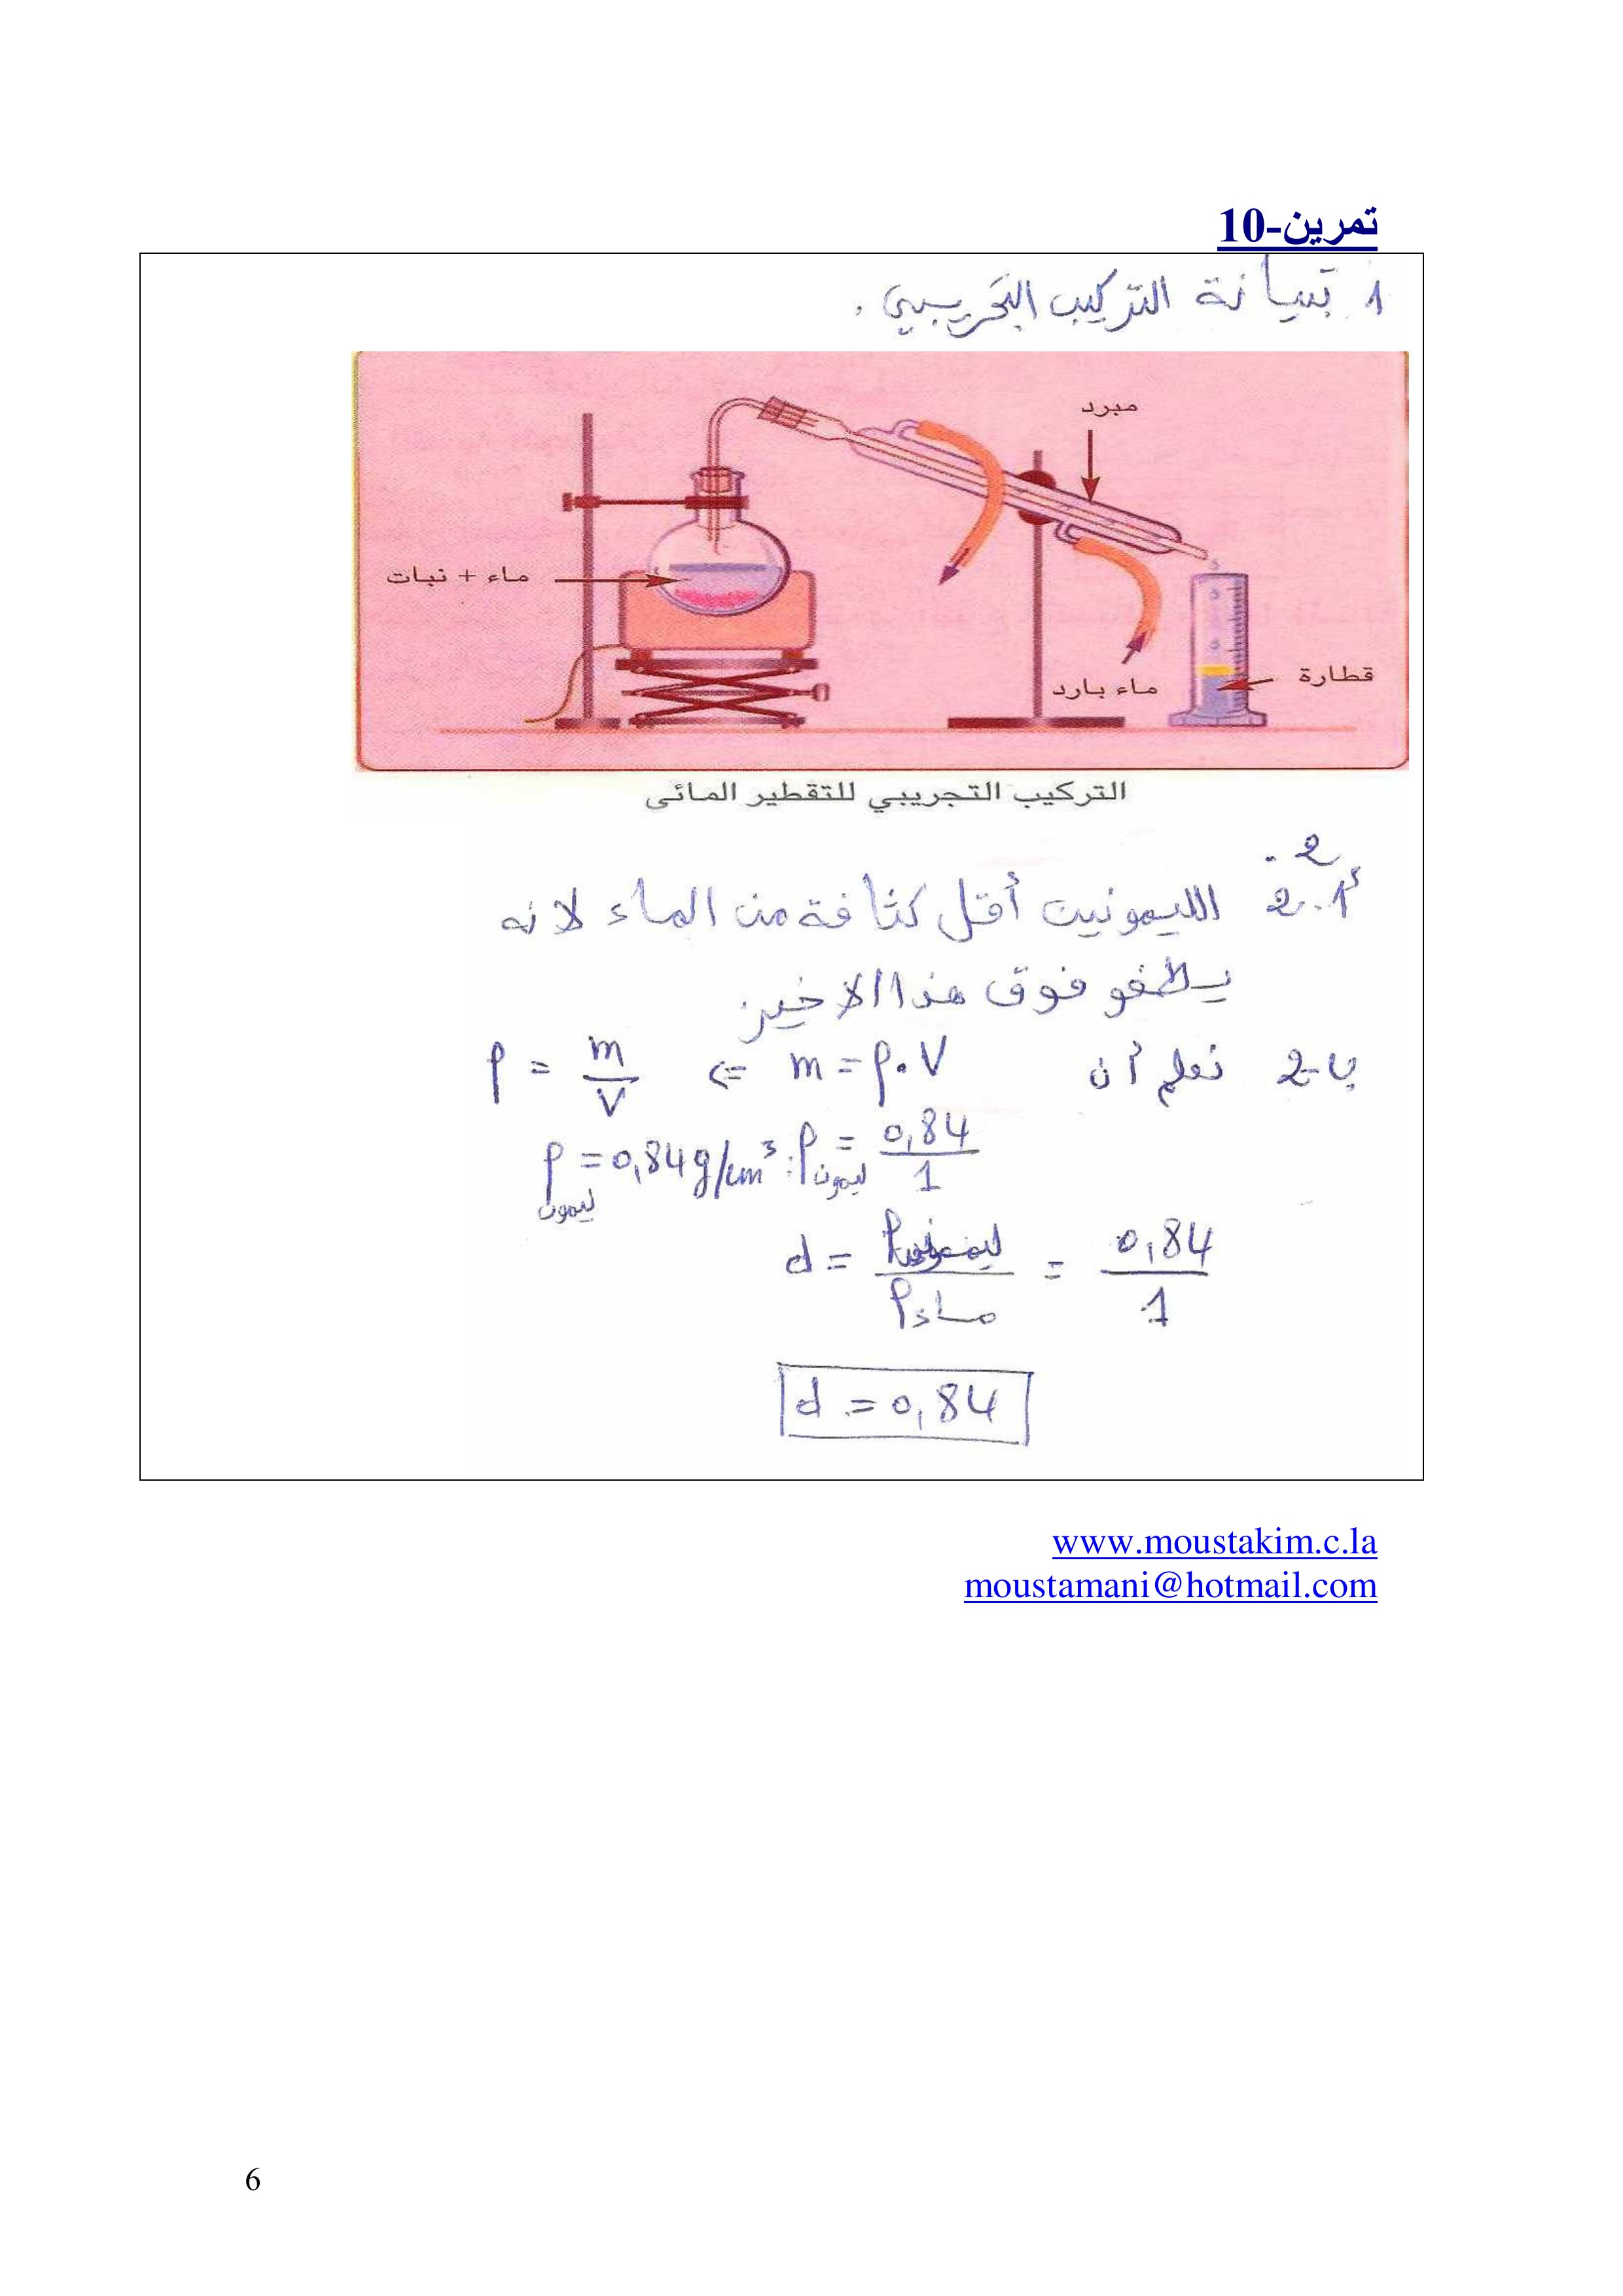 تمرين-10
1. تبيانة التركيب التجريبي.
مبرد
ماء + نبات
ماء بارد
قطارة
التركيب التجريبي للتقطير المائي
2.
2.أ الليمونيت أقل كثافة من الماء لانه
يطفو فوق هذا الاخير.
2-ب نعلم أن m = ρ.V ⇐ ρ = m/V
ρليمون = 0,84/1 : ρليمون = 0,84 g/cm³
d = ρليمون/ρماء = 0,84/1
d = 0,84
www.moustakim.c.la
moustamani@hotmail.com
6